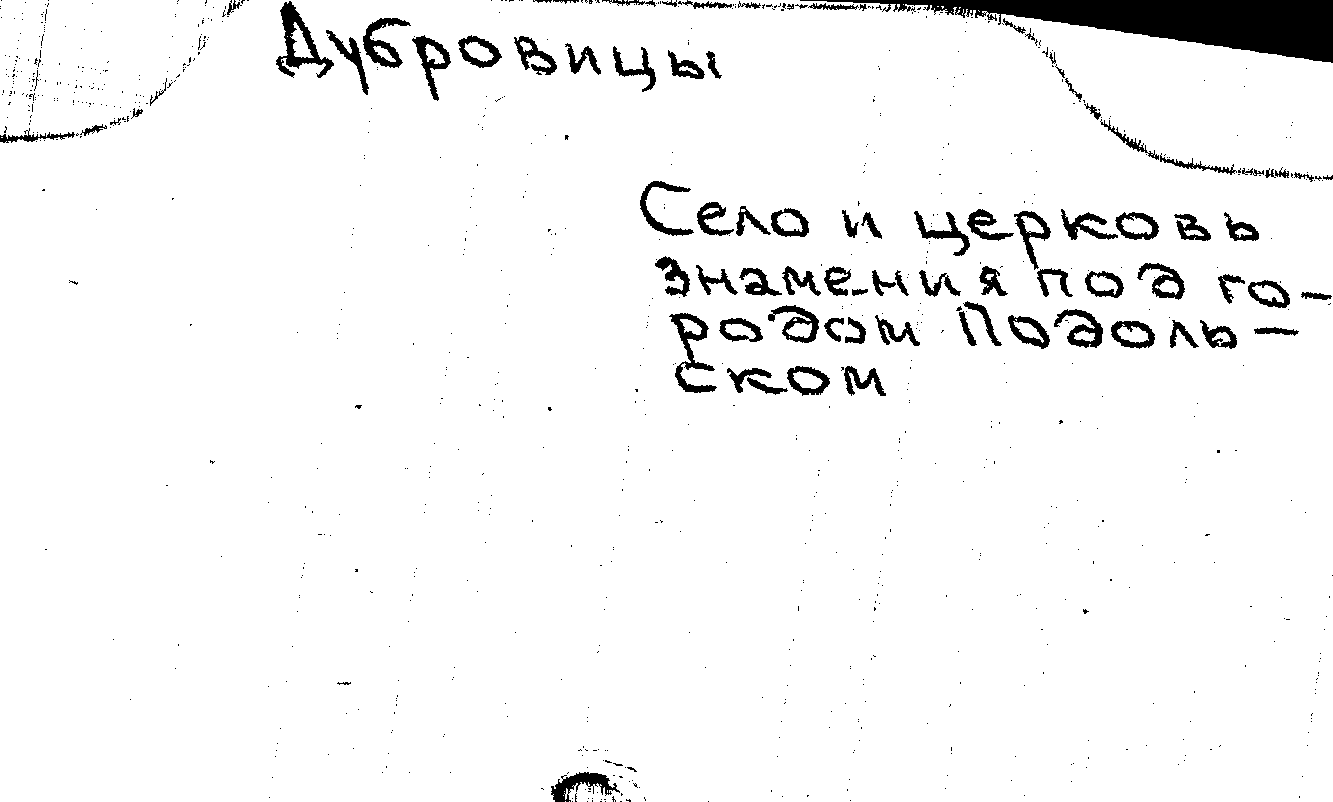 Дубровицы
Село и церковь
Знамения под го-
родом Подоль-
ском